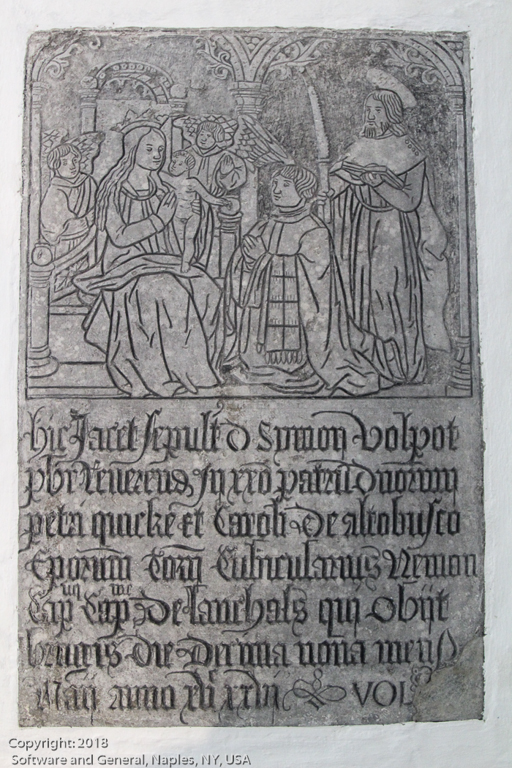 hic Jacet sepult d Symon volpot
pbr Reuerend, In xro patrū duorum
petri quicke et Caroli De altobusco
Eporum Torn Cubicularius Nemon
Cap De lanchals qui Obijt
brugis die Decima nona mens
Maij anno xxiii VOL
Copyright: 2018
Software and General, Naples, NY, USA